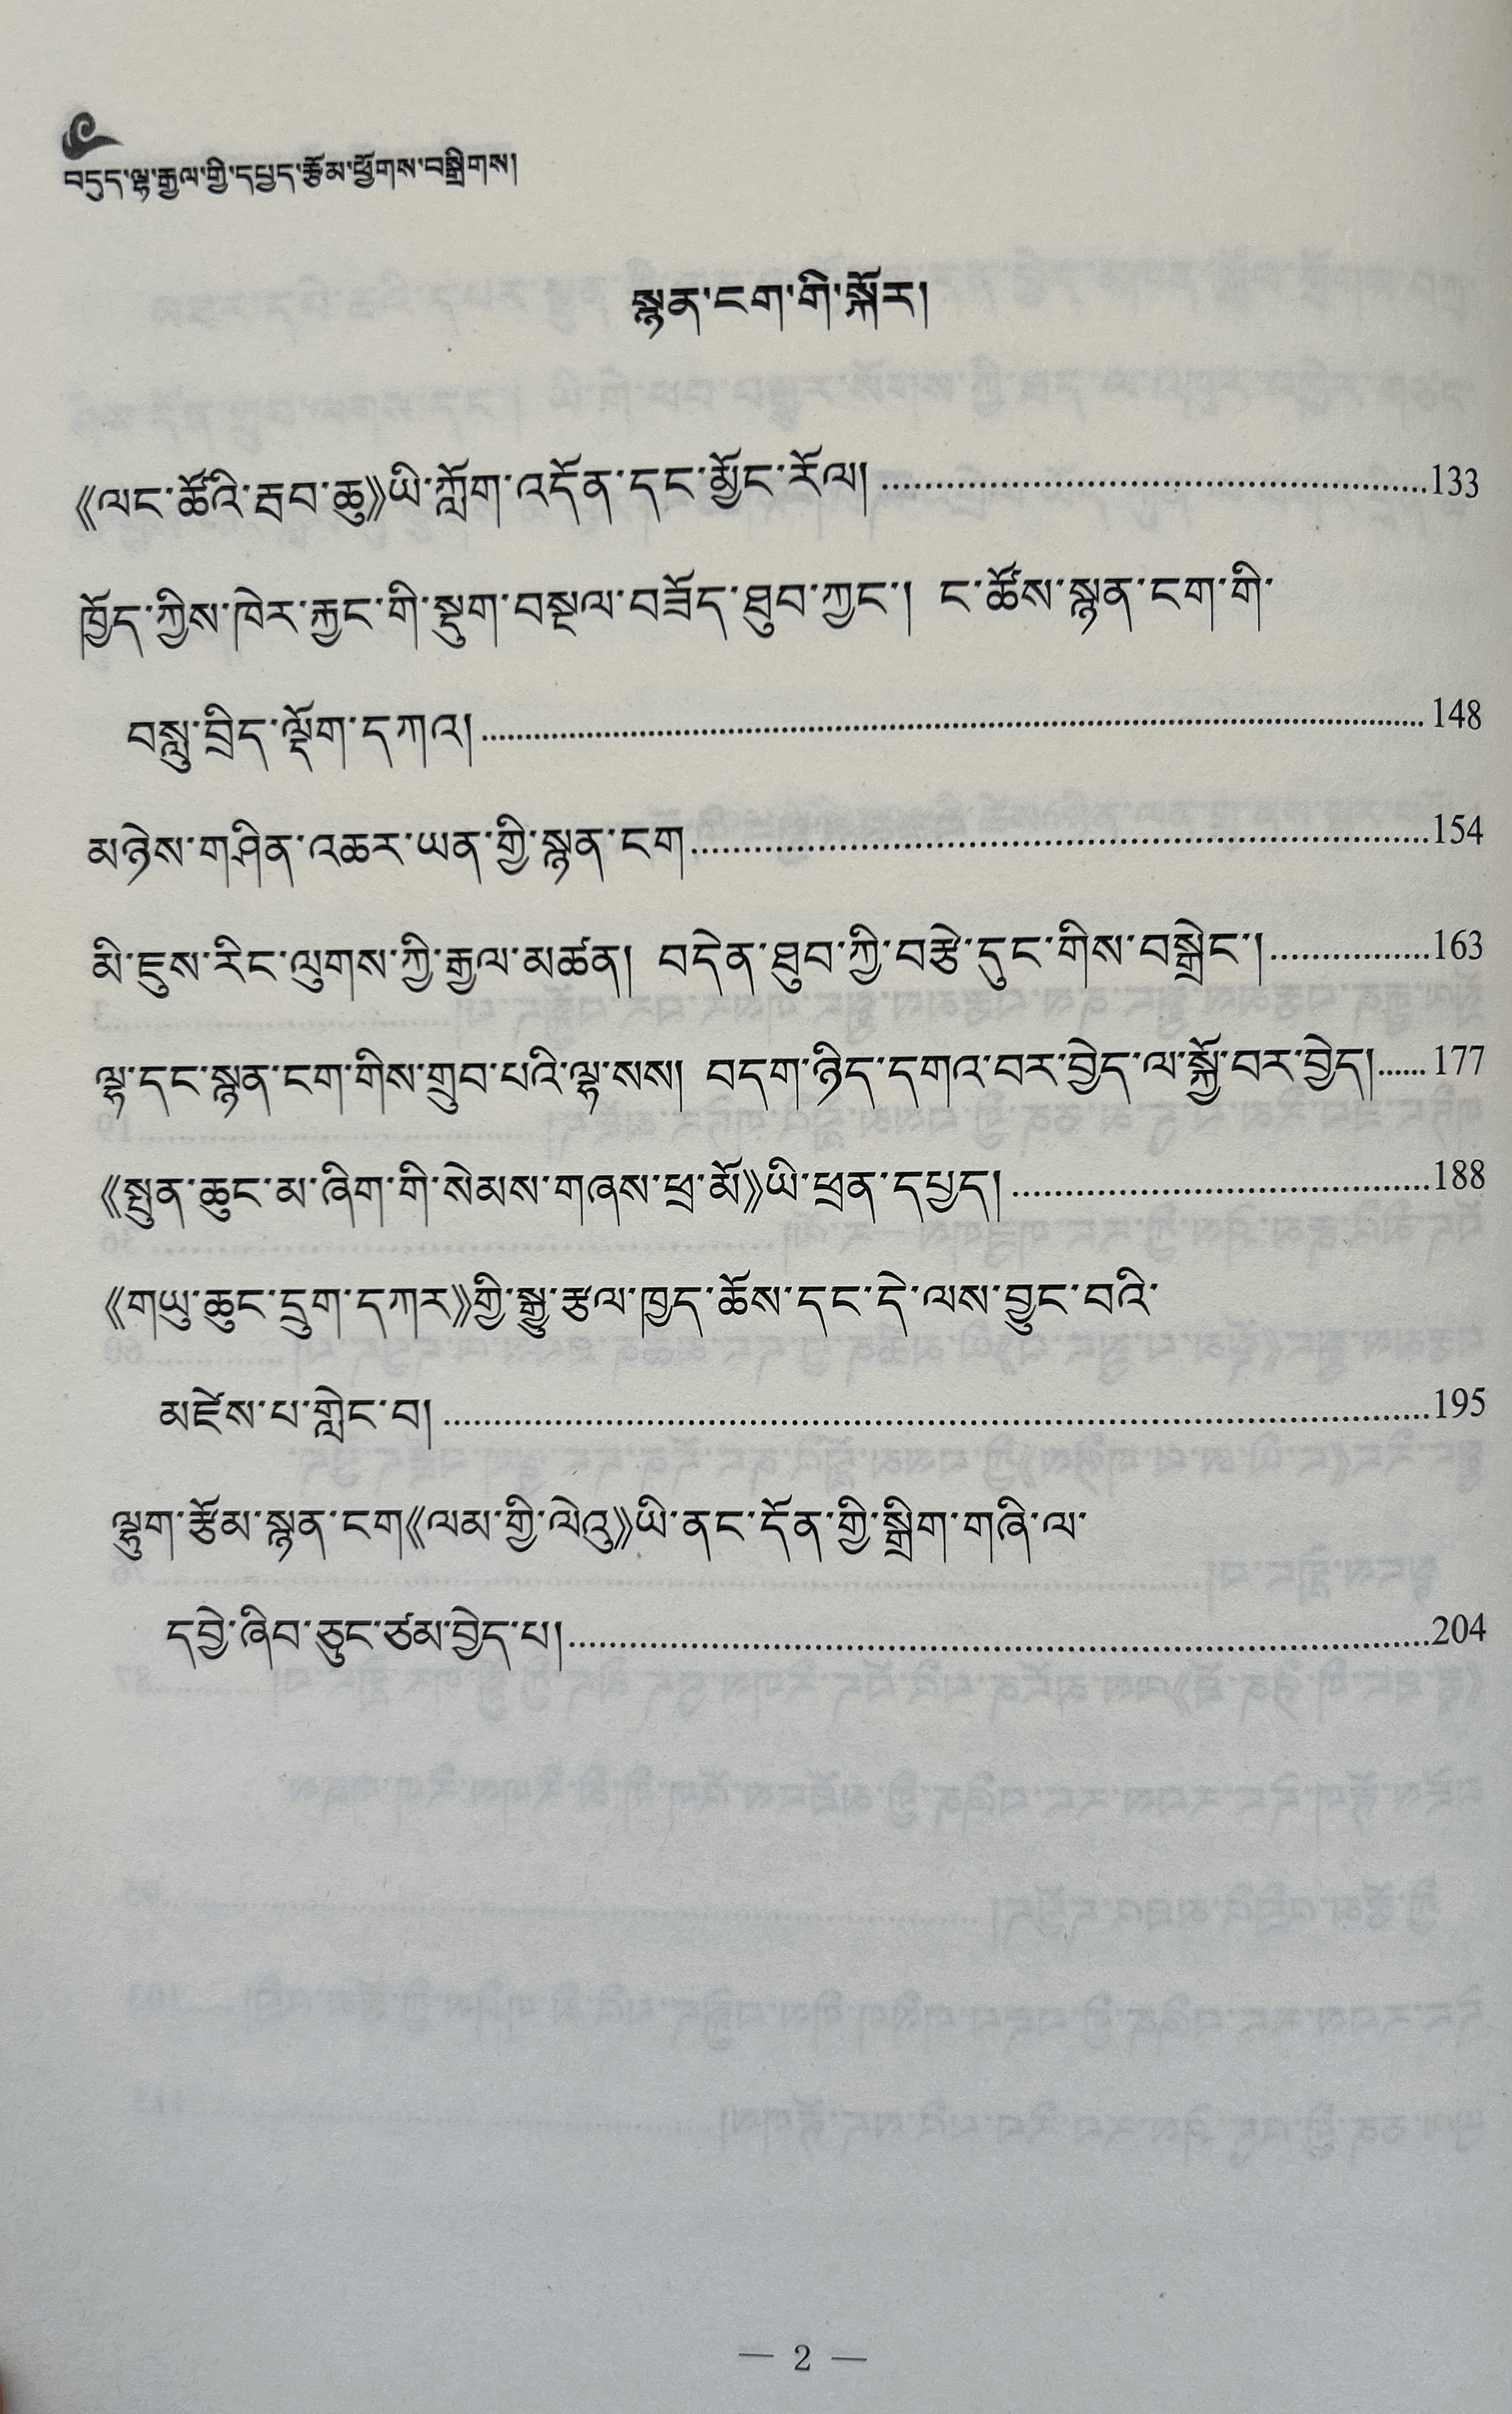 བདུད་ལྷ་རྒྱལ་གྱི་དཔྱད་རྩོམ་ཕྱོགས་བསྒྲིགས།
སྙན་ངག་གི་སྐོར།
《ལང་ཚོའི་རྦབ་ཆུ》ཡི་ཀློག་འདོན་དང་མྱོང་རོལ། ........ 133
ཁྱོད་ཀྱིས་ཁེར་རྐྱང་གི་སྡུག་བསྔལ་བཟོད་ཐུབ་ཀྱང་། ང་ཚོས་སྙན་ངག་གི་
བསླུ་བྲིད་ལྡོག་དཀའ། ........ 148
མཉེས་གཤིན་འཆར་ཡན་གྱི་སྙན་ངག ........ 154
མི་དུས་རིང་ལུགས་ཀྱི་རྒྱལ་མཚན། བདེན་ཐུབ་ཀྱི་བརྩེ་དུང་གིས་བསྒྲེང་། ........ 163
ལྷ་དང་སྙན་ངག་གིས་གྲུབ་པའི་ལྷ་སས། བདག་ཉིད་དགའ་བར་བྱེད་ལ་སྐྱོ་བར་བྱེད། ...... 177
《སྤུན་ཆུང་མ་ཞིག་གི་སེམས་གཞས་ཕྲ་མོ》ཡི་ཕྲན་དཔྱད། ........ 188
《གཡུ་ཆུང་དྲུག་དཀར》གྱི་སྒྱུ་རྩལ་ཁྱད་ཆོས་དང་དེ་ལས་བྱུང་བའི་
མཛེས་པ་གླེང་བ། ........ 195
ལྷུག་རྩོམ་སྙན་ངག《ལམ་གྱི་ལེའུ》ཡི་ནང་དོན་གྱི་སྒྲིག་གཞི་ལ་
དབྱེ་ཞིབ་ཅུང་ཙམ་བྱེད་པ། ........ 204
— 2 —